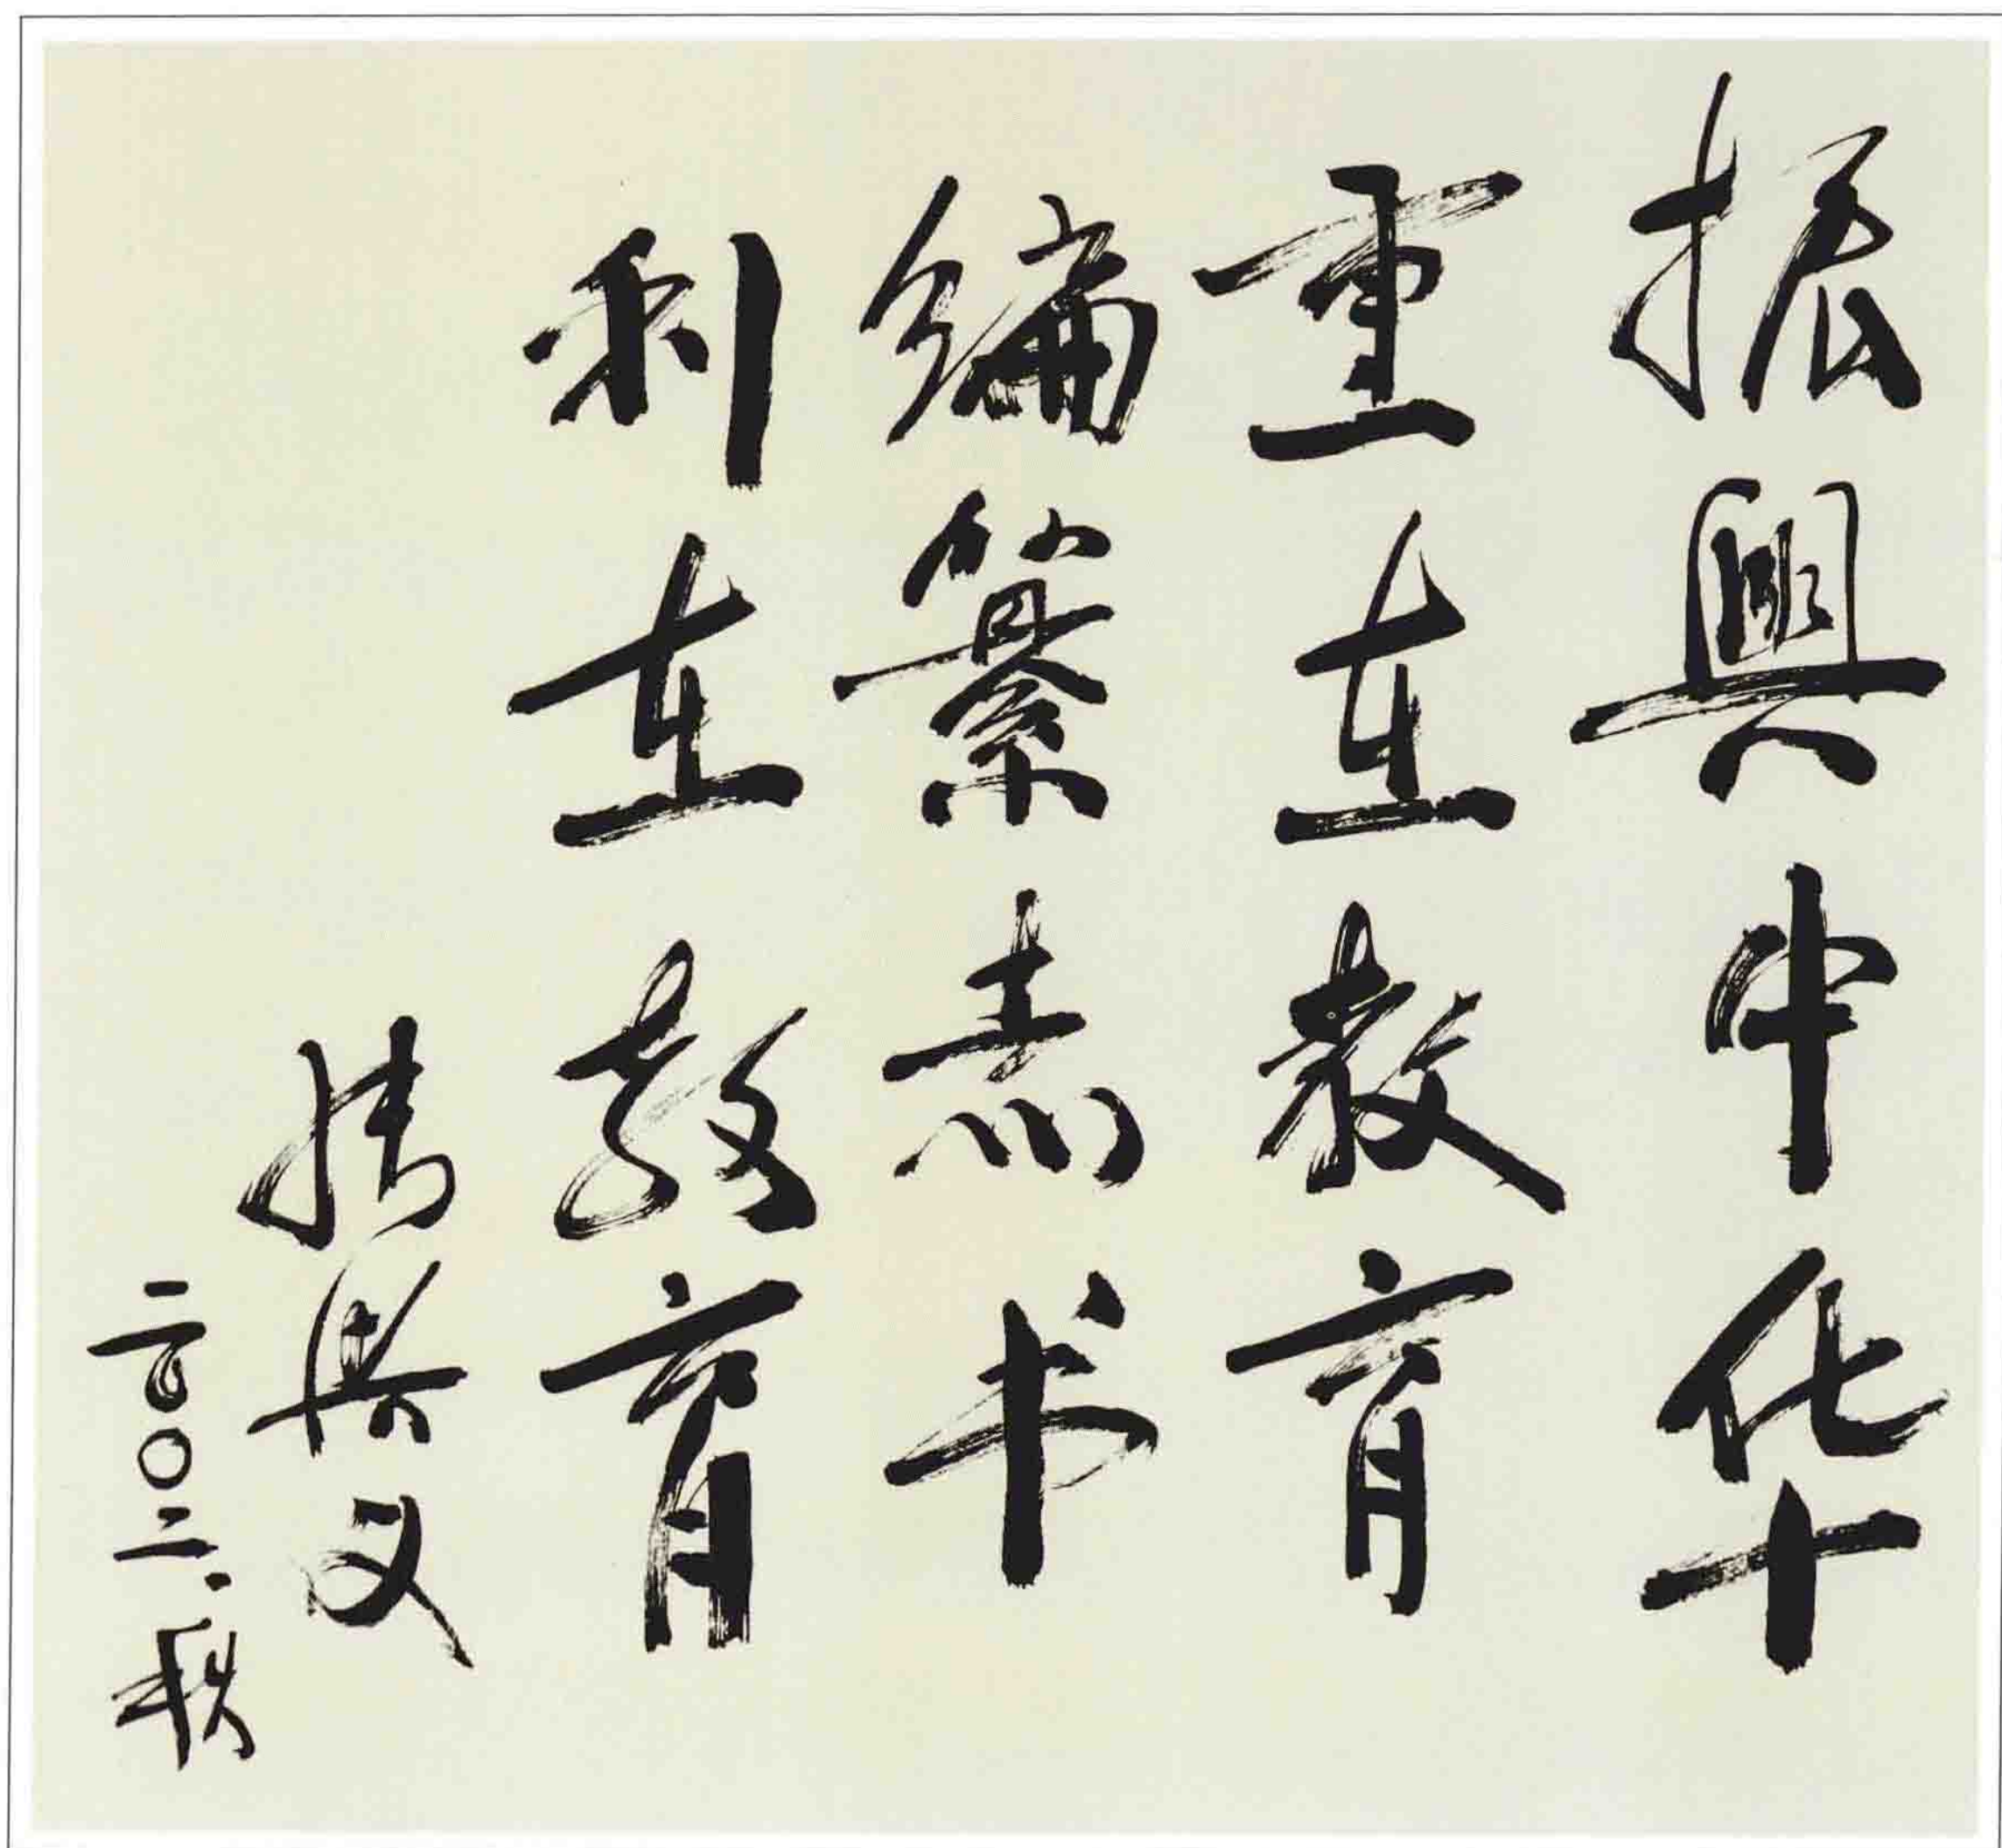 振興中华
重在教育
编纂志书
利在教育
二〇〇二.秋